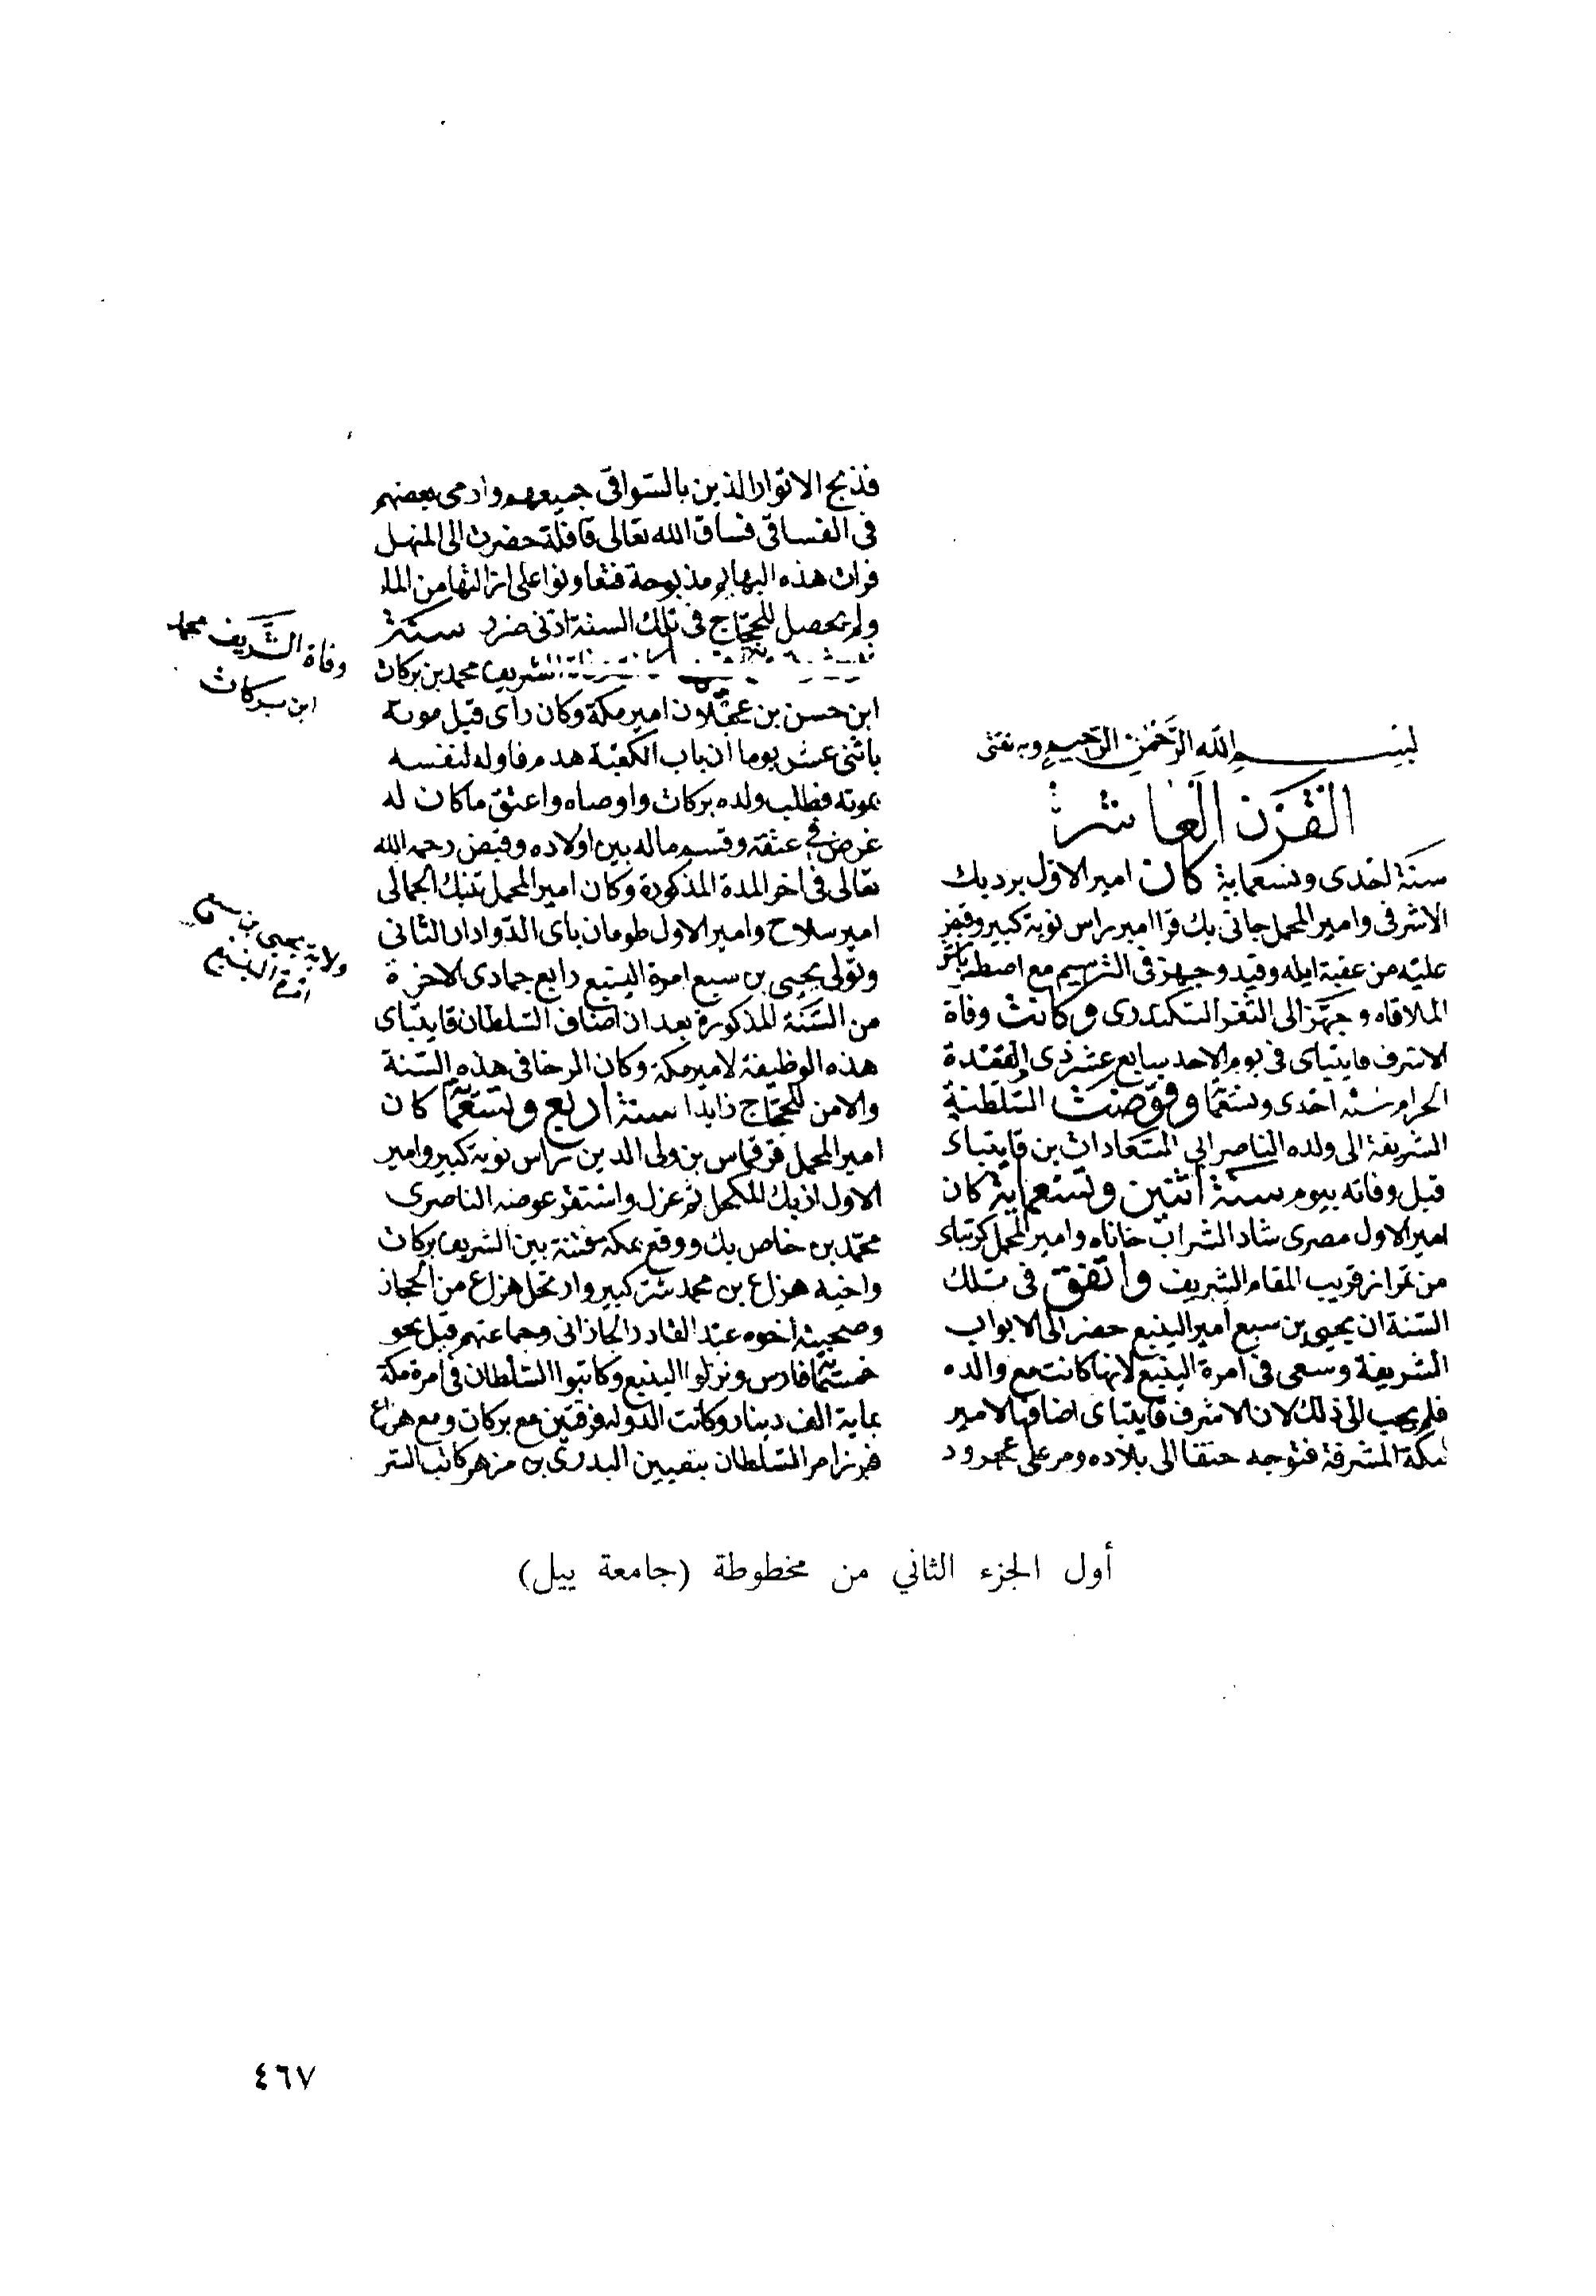 بسم الله الرحمن الرحيم وبه ثقتى
القرن العاشر
سنة احدى وتسعماية كان امير الاول برد بك
الاشرفى وامير المحمل جانى بك قرا امير راس نوبة كبير وقبض
عليه من عقبة ايله وقيد وجهز فى الترسيم مع اصطمر باش
الملاقاه وجهز الى الثغر السكندرى وكانت وفاة
الاشرف قايتباى فى يوم الاحد سابع عشر ذى القعدة
الحرام سنة احدى وتسعما وفوضت السلطنة
الشريفة الى ولده الناصر ابى السعادات بن قايتباى
قبل وفاته بيوم سنة اثنتين وتسعماية كان
امير الاول مصرى شاد الشراب خاناه وامير المحمل كرتباى
من تمراز قريب المقام الشريف واتفق فى تلك
السنة ان يحيى بن سبع امير الينبع حضر الى الابواب
الشريفة وسعى فى امرة الينبع لانها كانت مع والده
فلم يجب الى ذلك لان الاشرف قايتباى اضافها لامير
مكة المشرفة فتوجه حنقا الى بلاده ومر على عجرود
فذبح الاثوار الذين بالسواقى جميعهم وارمى بعضهم
فى الفساقى فساق الله تعالى قافلة حضرت الى المنهل
فرات هذه البهايم مذبوحة فتعاونوا على ازالتها من الماء
ولم يحصل للحجاج فى تلك السنة ادنى ضرر سنة
الشريف محمد بن بركات
ابن حسن بن عجلان امير مكة وكان راى قبل موته
باثنى عشر يوما ان باب الكعبة هدم فاوله لنفسه
بموته فطلب ولده بركات واوصاه واعتق ما كان له
غرض فى عتقه وقسم ماله بين اولاده وقبض رحمه الله
تعالى فى اخر المدة المذكورة وكان امير المحمل تنبك الجمالى
امير سلاح وامير الاول طومان باى الدوادار الثانى
وتولى يحيى بن سبع امرة الينبع رابع جمادى الاخرة
من السنة المذكورة بعد ان اضاف السلطان قايتباى
هذه الوظيفة لامير مكة وكان الرخا فى هذه السنة
والامن للحجاج زايدا سنة اربع وتسعما كان
امير المحمل قرقماس بن ولى الدين راس نوبة كبير وامير
الاول ازبك المكحل ثم عزل واستقر عوضه الناصرى
محمد بن خاص بك ووقع بمكة فتنة بين الشريف بركات
واخيه هزاع بن محمد شر كبير وارتحل هزاع من الحجاز
وصحبته اخوه عبد القادر الجازانى وجماعتهم قبل نحو
خمسمائة فارس ونزلوا الينبع وكاتبوا السلطان فى امرة مكة
بماية الف دينار وكانت الدولة فرقتين مع بركات ومع هزاع
فبرز امر السلطان بتعيين البدرى بن مزهر كاتب السر
وفاة الشريف محمد
ابن بركات
ولاية يحيى بن سبع
امرة الينبع
أول الجزء الثاني من مخطوطة (جامعة ييل)
٤٦٧